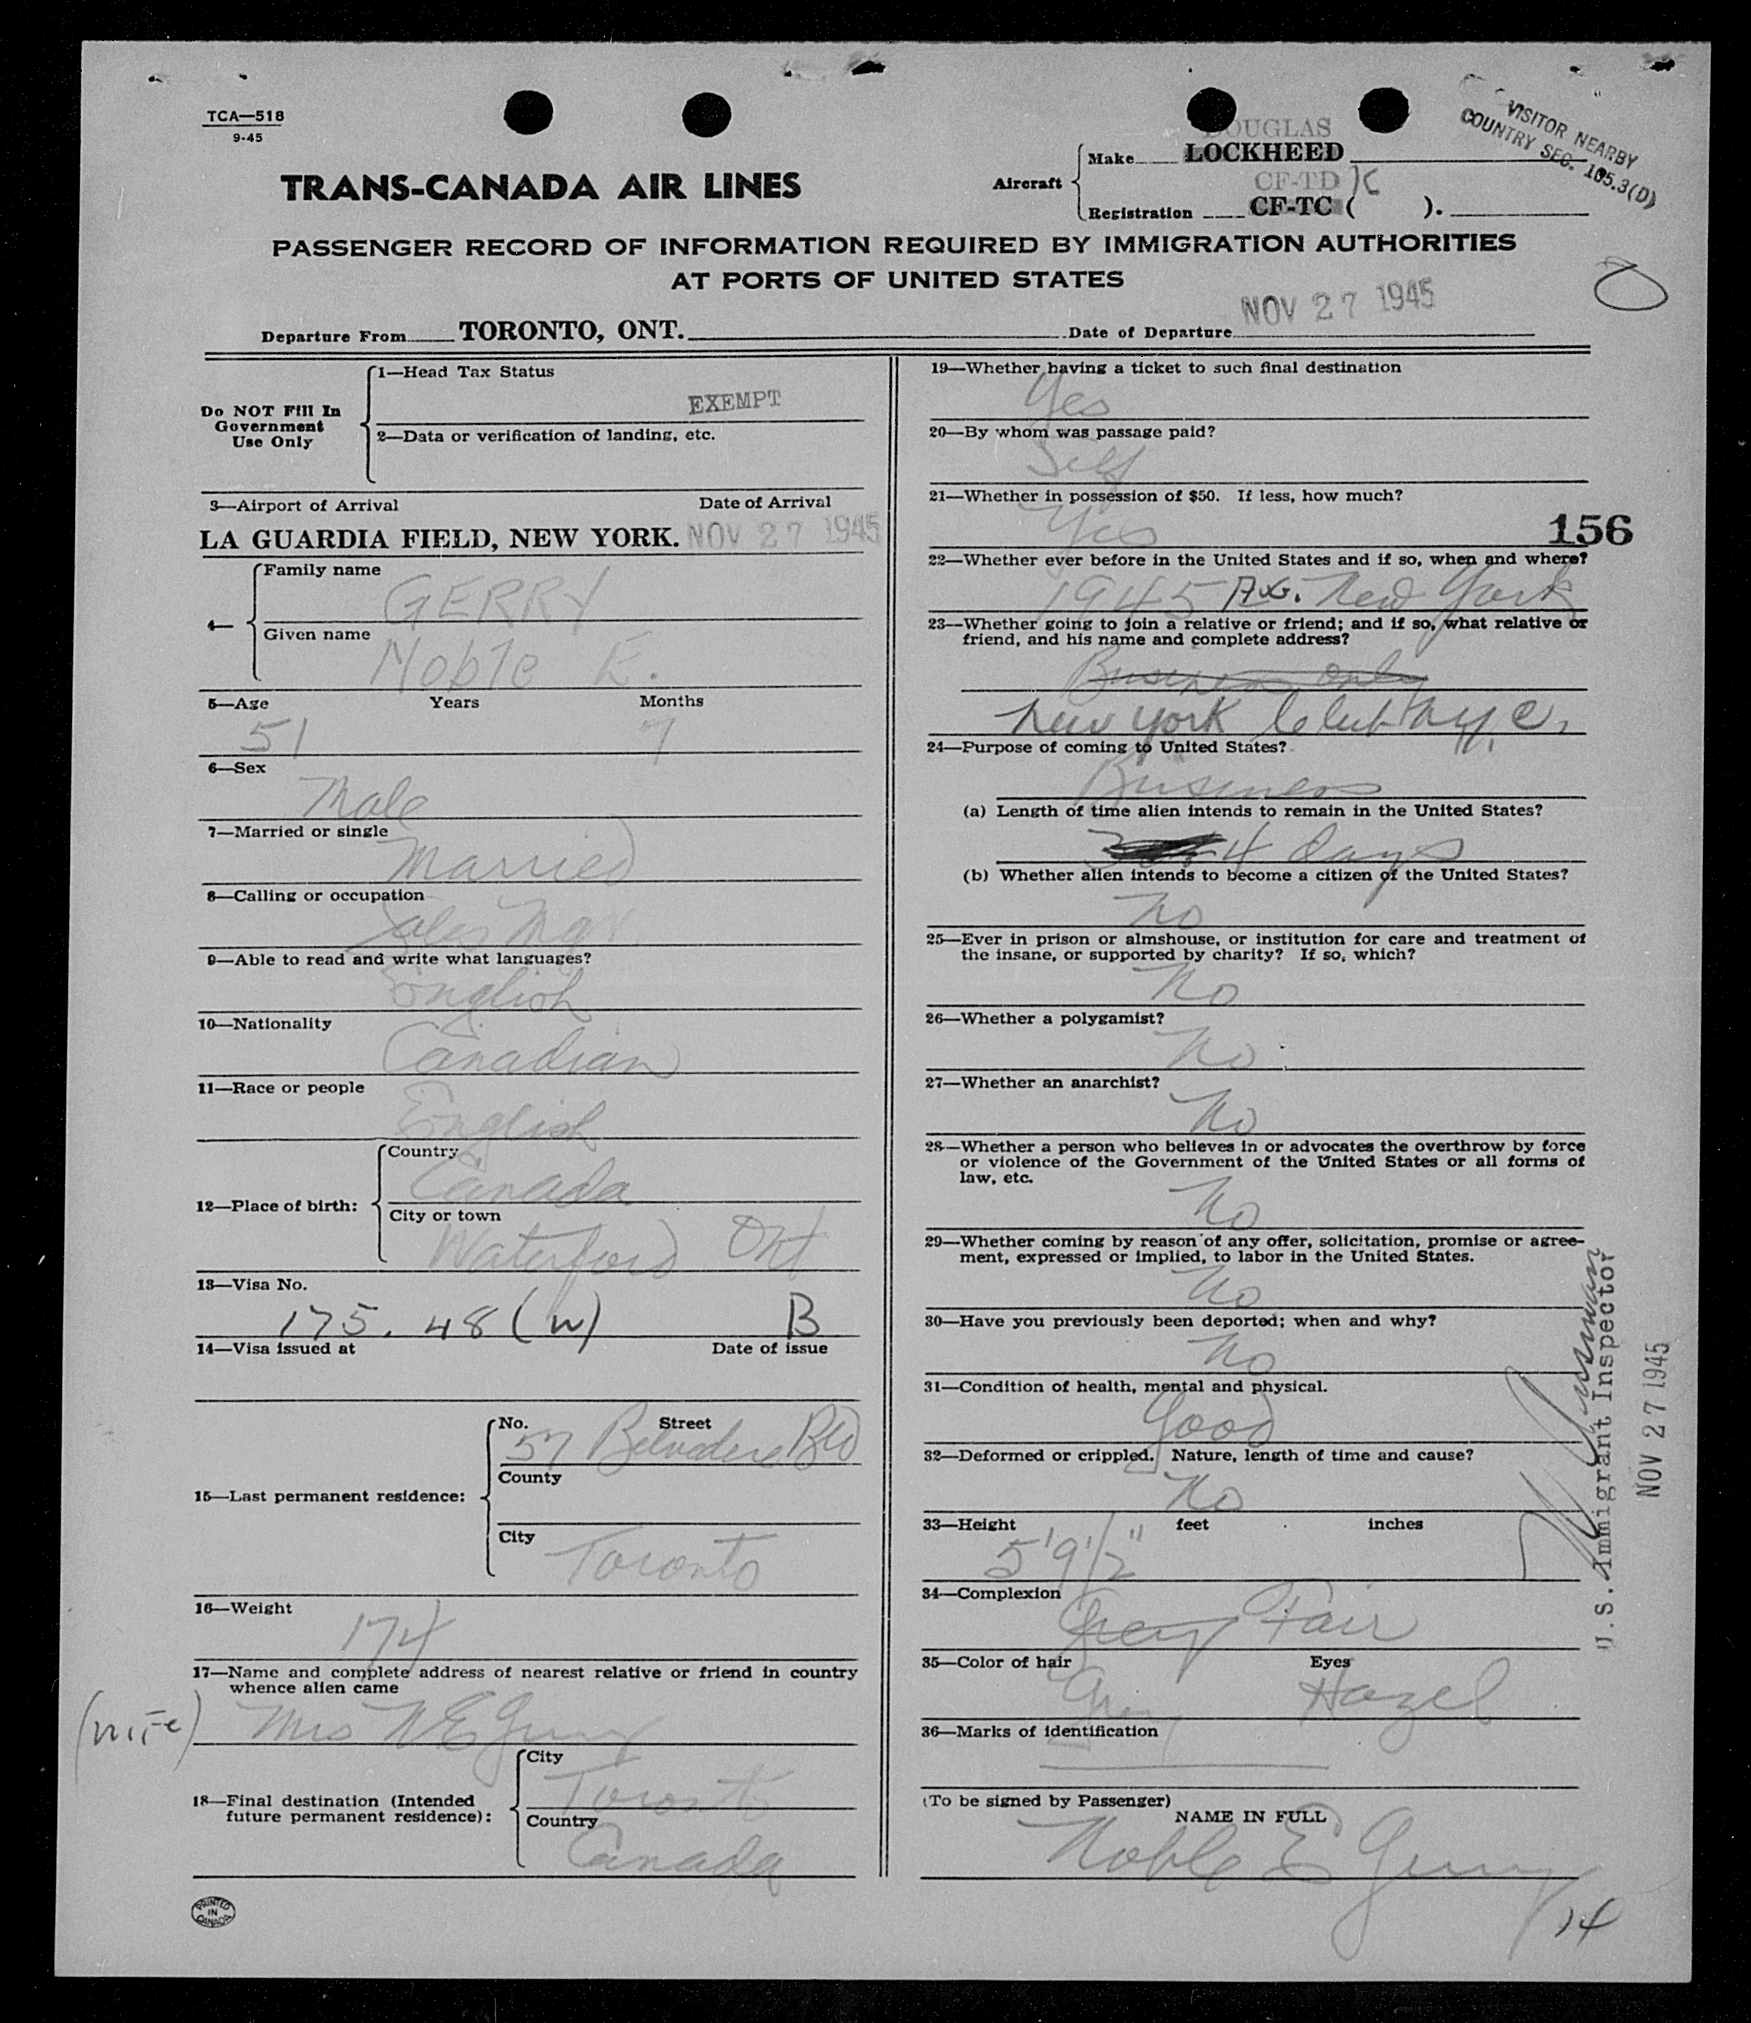 TCA—518
9-45
VISITOR NEARBY
COUNTRY SEC. 165.3(D)
TRANS-CANADA AIR LINES
Aircraft
DOUGLAS
Make LOCKHEED
CF-TD K
Registration CF-TC ( ).
PASSENGER RECORD OF INFORMATION REQUIRED BY IMMIGRATION AUTHORITIES
AT PORTS OF UNITED STATES
Departure From TORONTO, ONT. Date of Departure NOV 27 1945
Do NOT Fill In
Government
Use Only
1—Head Tax Status
EXEMPT
2—Data or verification of landing, etc.
3—Airport of Arrival Date of Arrival
LA GUARDIA FIELD, NEW YORK. NOV 27 1945
4—
Family name
GERRY
Given name
Noble E.
5—Age Years Months
51 7
6—Sex
Male
7—Married or single
Married
8—Calling or occupation
Sales Mgr.
9—Able to read and write what languages?
English
10—Nationality
Canadian
11—Race or people
English
12—Place of birth:
Country
Canada
City or town
Waterford Ont
13—Visa No.
175.48 (w) B
14—Visa issued at Date of issue
15—Last permanent residence:
No. Street
57 Belvadere Blvd
County
City
Toronto
16—Weight
174
17—Name and complete address of nearest relative or friend in country
whence alien came
(wife) Mrs N E Gerry
18—Final destination (Intended
future permanent residence):
City
Toronto
Country
Canada
PRINTED
IN
CANADA
19—Whether having a ticket to such final destination
Yes
20—By whom was passage paid?
Self
21—Whether in possession of $50. If less, how much?
Yes
156
22—Whether ever before in the United States and if so, when and where?
1945 Aug. New York
23—Whether going to join a relative or friend; and if so, what relative or
friend, and his name and complete address?
Business only
New York Club N.Y.C.
24—Purpose of coming to United States?
Business
(a) Length of time alien intends to remain in the United States?
4 days
(b) Whether alien intends to become a citizen of the United States?
No
25—Ever in prison or almshouse, or institution for care and treatment of
the insane, or supported by charity? If so, which?
No
26—Whether a polygamist?
No
27—Whether an anarchist?
No
28—Whether a person who believes in or advocates the overthrow by force
or violence of the Government of the United States or all forms of
law, etc.
No
29—Whether coming by reason of any offer, solicitation, promise or agree-
ment, expressed or implied, to labor in the United States.
No
30—Have you previously been deported; when and why?
No
31—Condition of health, mental and physical.
Good
32—Deformed or crippled. Nature, length of time and cause?
No
33—Height feet inches
5' 9 1/2"
34—Complexion
Grey Fair
35—Color of hair Eyes
Grey Hazel
36—Marks of identification
(To be signed by Passenger)
NAME IN FULL
Noble E Gerry
14
U.S. Immigrant Inspector
NOV 27 1945